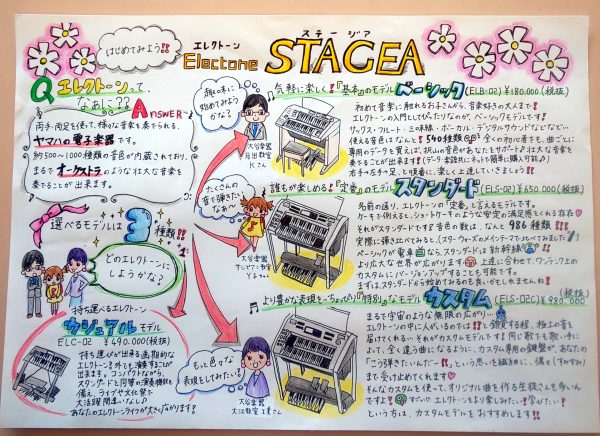 はじめてみよう!!
エレクトーン ステージア
Electone STAGEA
Q エレクトーンって、
なぁに??
ANSWER
両手・両足を使って、様々な音楽を奏でられる、
ヤマハの電子楽器です。
約500～1000種類の音色が内蔵されており、
まるでオーケストラのような壮大な音楽を
奏でることが出来ます。
選べるモデルは3種類!!
どのエレクトーンに
しようかな?
持ち運べるエレクトーン
カジュアル モデル
ELC-02 ¥490.000(税抜)
持ち運びが出来る画期的な
エレクトーン!を外でも演奏することが
出来ます。コンパクトながら、
スタンダードと同等の演奏機能を
備え、ライブや文化祭で
大活躍間違いなし♪
あなたのエレクトーンライフが大きく広がります?
趣味の本に
始めてみよう
かな?
大谷楽器
Kさん
気軽に楽しく!『基本』のモデル ベーシック (ELB-02) ¥180.000(税抜)
初めて音楽に触れるお子さんから、音楽好きの大人まで!
エレクトーンの入門としてぴったりなのが、ベーシックモデルです!
リックス・フルート・三味線・ボーカル・デジタルサウンドなどなど…
使える音色はなんと!540種類 全くの初心者でも、曲ごとに
専用のデータを買えば、沢山の音色があなたをサポート♪壮大な音楽を
奏でることが出来ます!(データ・楽譜共にネットで簡単に購入可能♪)
右手→左手→足、と順番に、楽しく上達していきましょう!
たくさんの
音で弾きたい
なぁ〜
大谷楽器
誰もが楽しめる!『定番』のモデル スタンダード (ELS-02) ¥650.000(税抜)
名前の通り、エレクトーンの「定番」と言えるモデルです。
ケーキで例えると、ショートケーキのような安定の満足感をくれる存在
それがスタンダードです♡音色の数は、なんと986種類!!!
実際に弾き比べてみると、(スターウォーズのメインテーマで比べてみました♪)
ベーシックが電車 なら、スタンダードは新幹線
より広大な世界が広がります 上達に合わせて、ワンランク上の
カスタムにバージョンアップすることも可能です。
まずはスタンダードから始めてみるのも良いかもしれませんね。
もっと色々な
表現をしてみたい!
大谷楽器
より豊かな表現を…ちょっぴり『特別』なモデル カスタム (ELS-02C) ¥980.000(税抜)
まるで宇宙のような無限の広がり…
エレクトーンの中に人がいるのでは!!と錯覚する程、極上の音を
届けてくれる… それがカスタムモデルです!同じ歌でも歌い手に
よって、全く違う曲になるように、カスタム専用の鍵盤が、あなたの
「こう弾きたいんだ…!!」という思いを細かい所まで
まで受け止めてくれます♡
そんなカスタムを使って、オリジナル曲を作る生徒さんも多いん
ですよ! すごい!エレクトーンをより楽しみたい!学びたい!
という方は、カスタムモデルをおすすめします!!